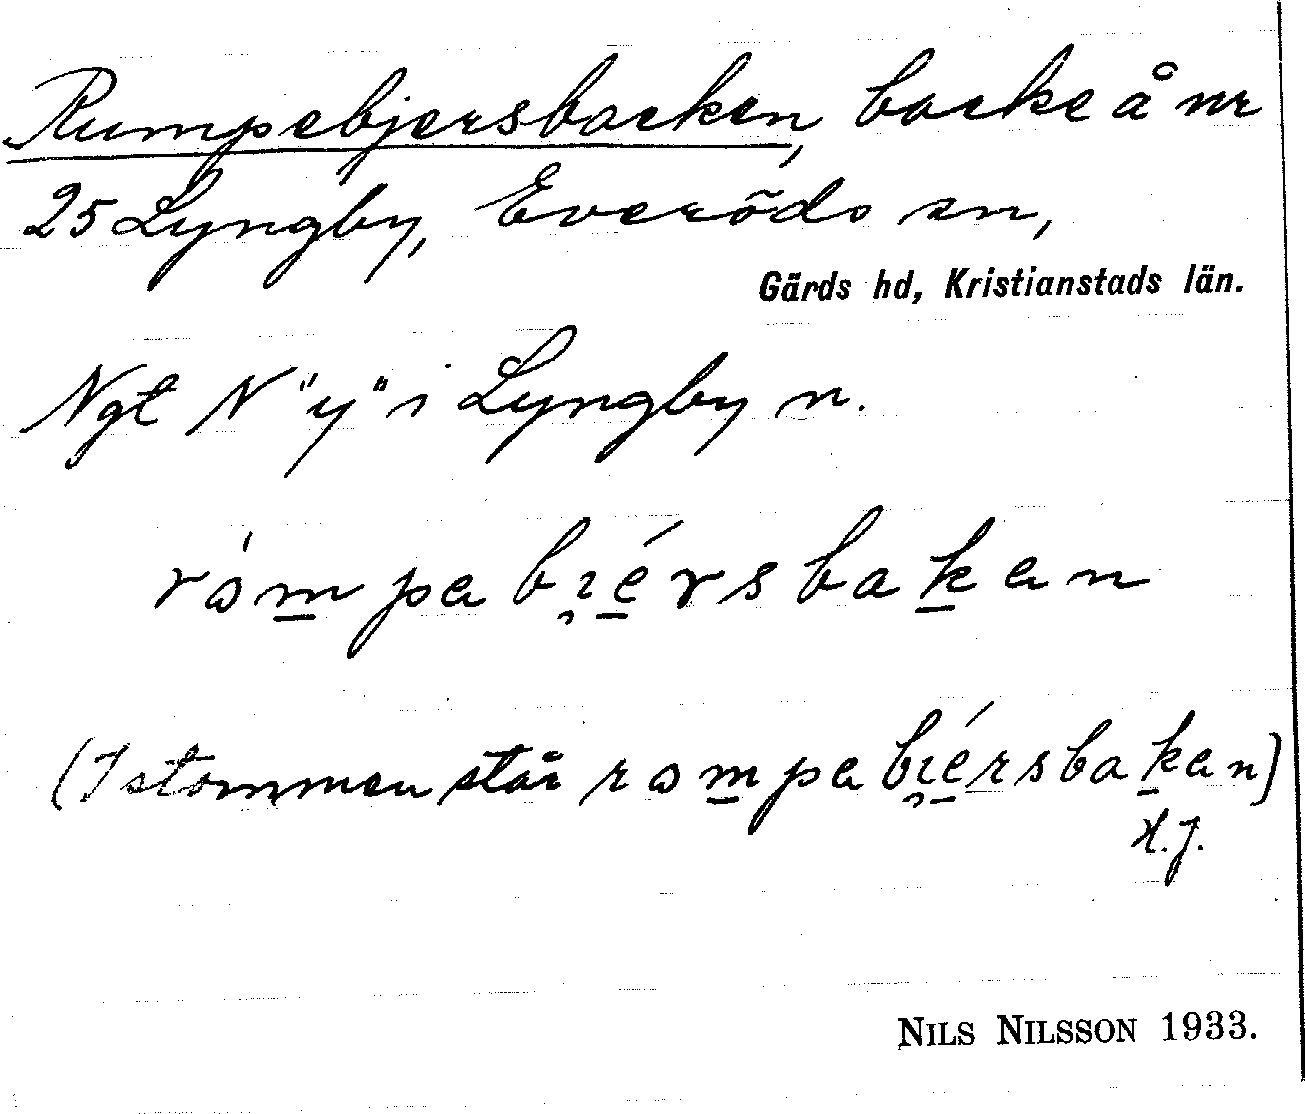 Rumpebjersbacken, backe å nr
25 Lyngby, Everöds sn,
Gärds hd, Kristianstads län.
Ngt N "y" i Lyngby n.
rómpabi̯érsbakan
(I stommen står rompabi̯érsbakan)
H.J.
NILS NILSSON 1933.